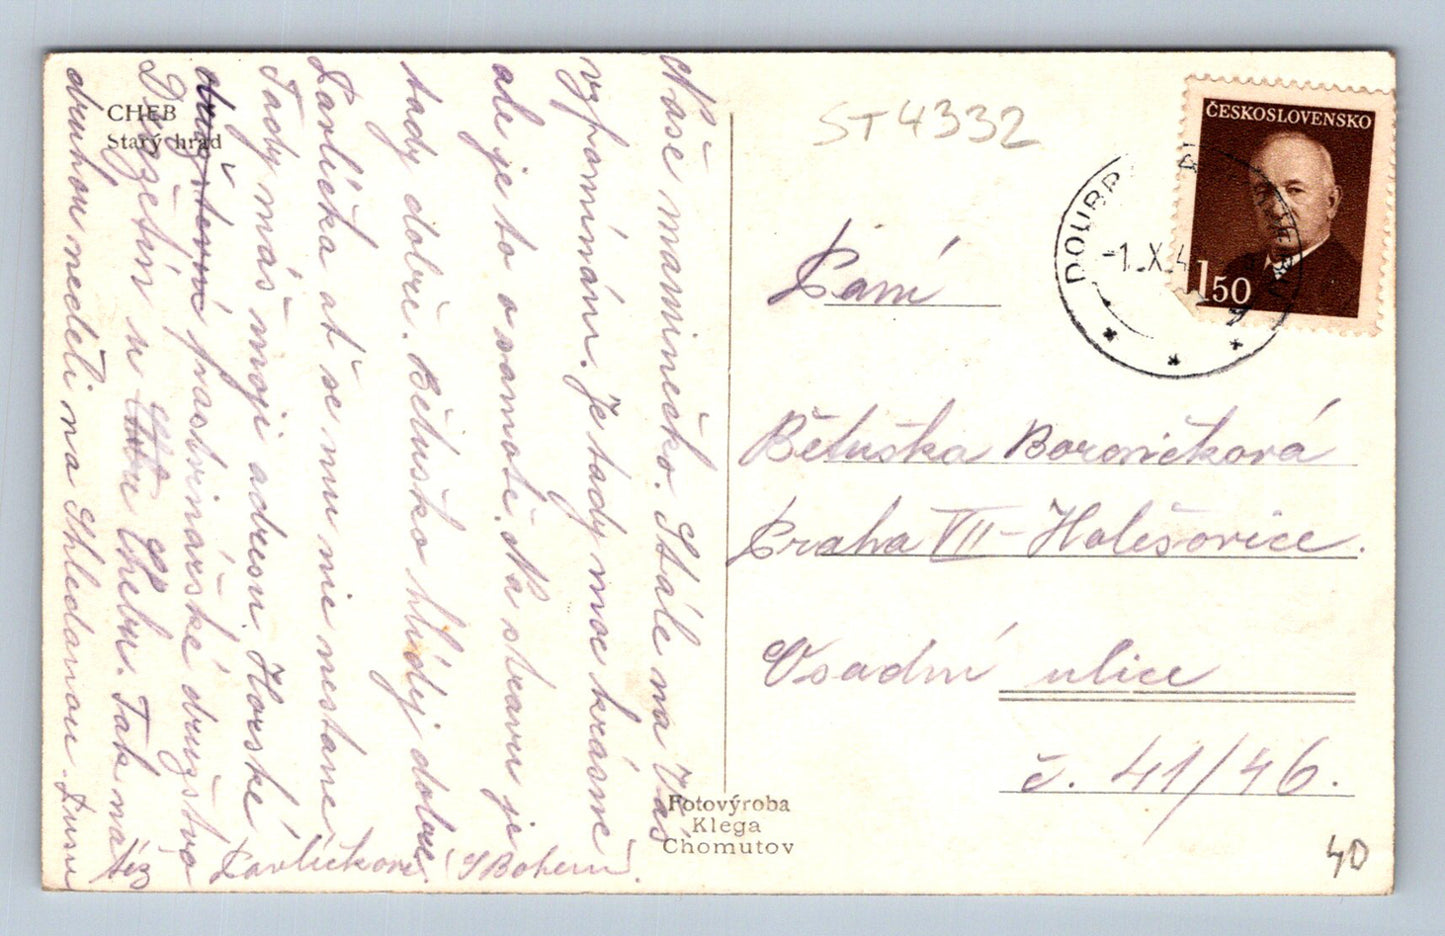 CHEB
Starý hrad
Naše maminečko. Stále na Vás
vzpomínám. Je tady moc krásně
ale je to o samotě. Na stravu je
tady dobře. Bětuško hlídej dobře
Pavlíčka ať se mu nic nestane.
Tady máš moji adresu. Horské
pastvinářské družstvo
Drzetín u Chebu. Tak na
druhou neděli na Shledanou
též Pavlíčkovi. S Bohem.
ST 4332
ČESKOSLOVENSKO
1.50
-1.X.4
Paní
Bětuška Borovičková
Praha VII - Holešovice.
Osadní ulice
č. 41/46.
Fotovýroba
Klega
Chomutov
40